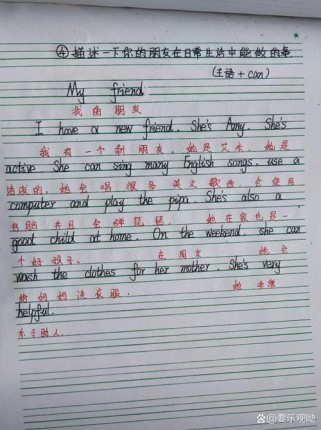 ④描述一下你的朋友在日常生活中能做的事
(主语+can)
My friend
我的朋友
I have a new friend. She's Amy. She's
我有一个新朋友, 她是艾米, 她是
active. She can sing many English songs, use a
活泼的, 她会唱很多英文歌曲, 会使用
computer and play the pipa. She's also a
电脑 并且会弹琵琶. 她在家也是一
good child at home. On the weekend, she can
个好孩子. 在周末 她会
wash the clothes for her mother. She's very
帮妈妈洗衣服. 她非常
helpful.
乐于助人.
@要乐现呦